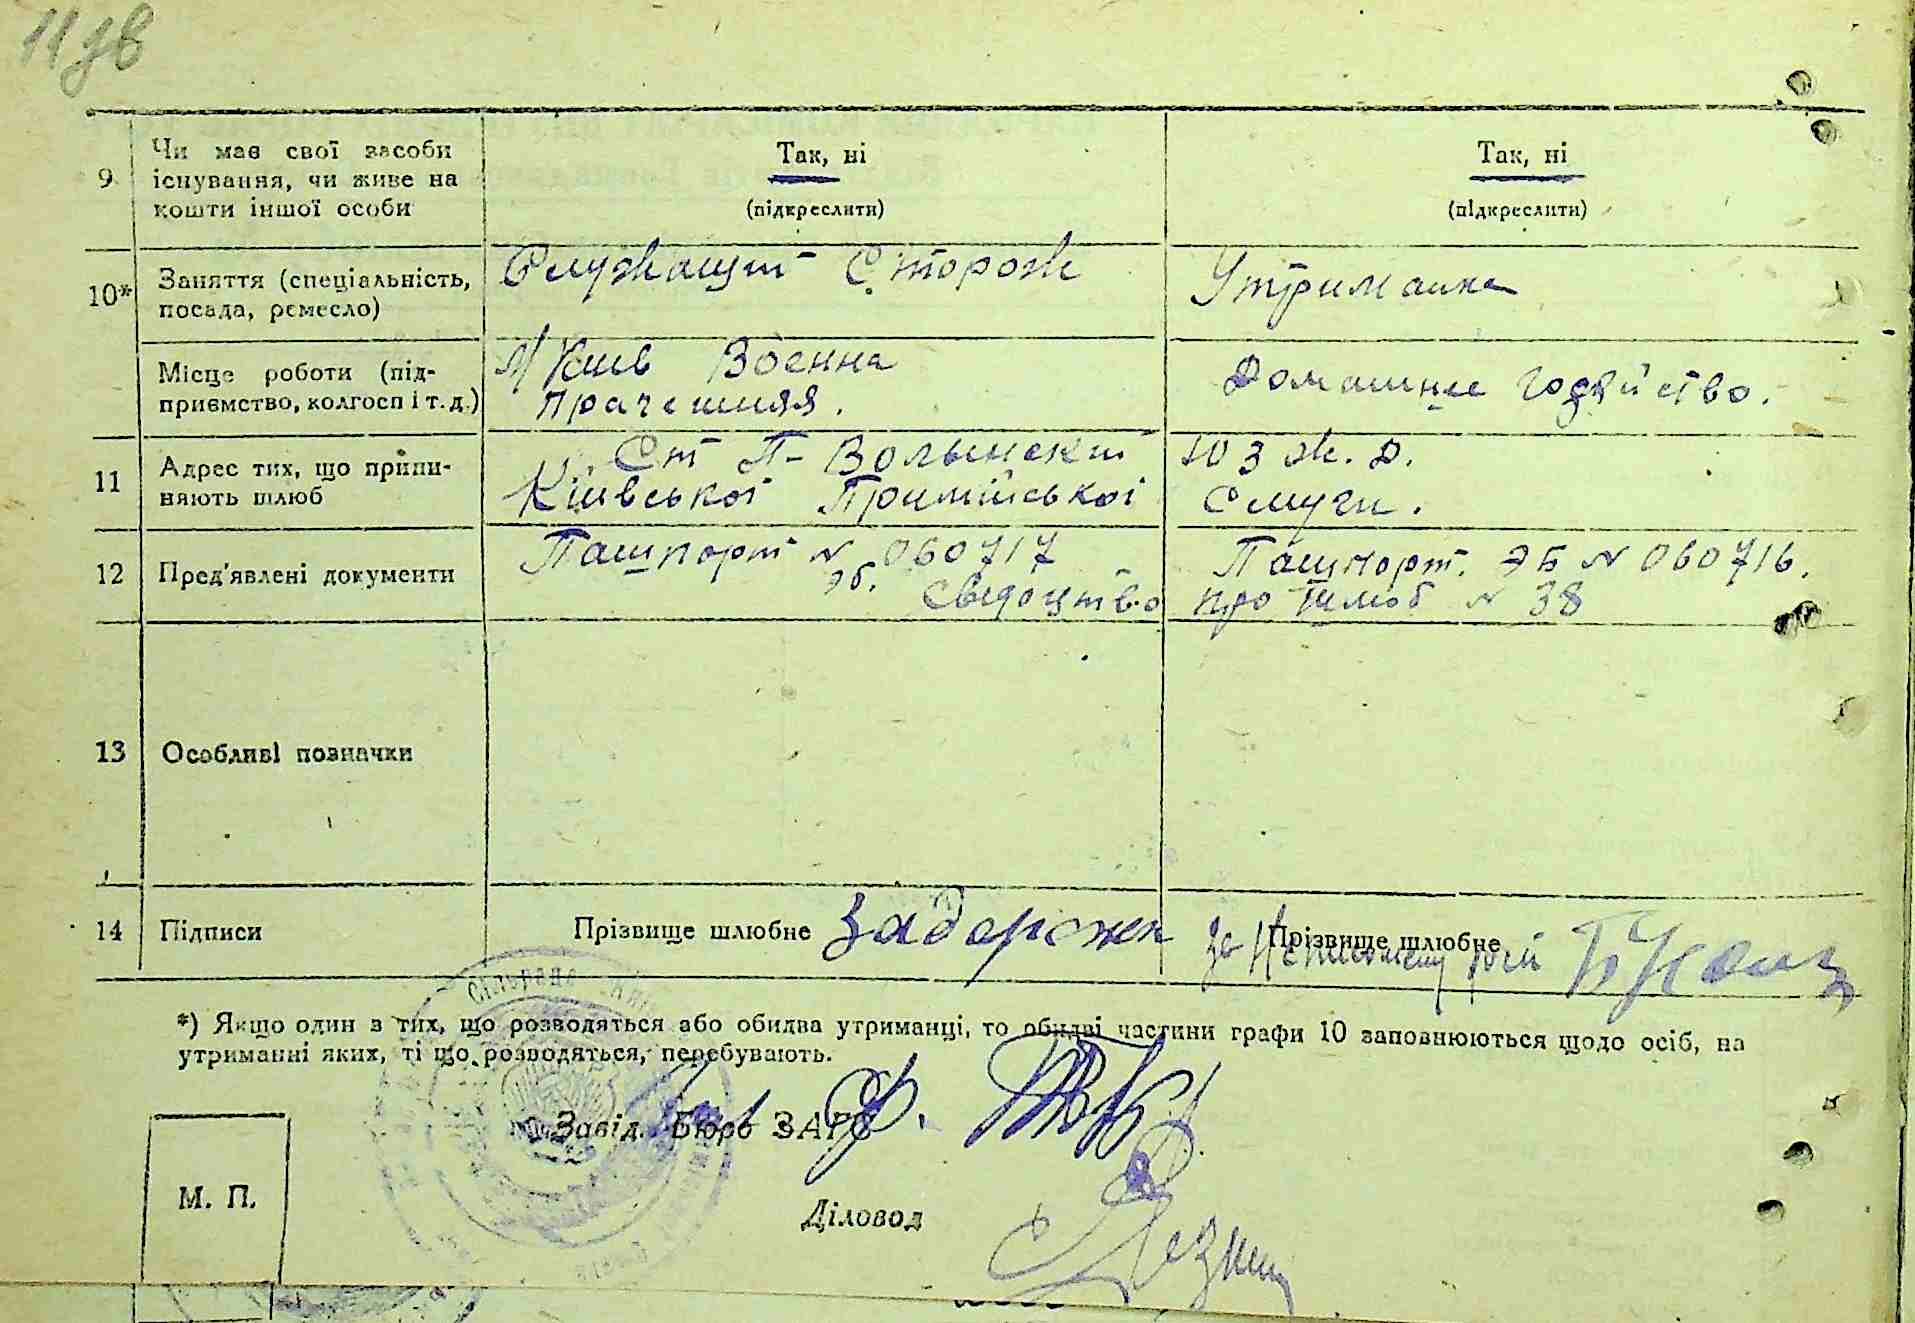 11зв
9 Чи має свої засоби існування, чи живе на кошти іншої особи
Так, ні
(підкреслити)
Так, ні
(підкреслити)
10* Заняття (спеціальність, посада, ремесло)
Служащий Сторож
Утриманка
Місце роботи (підприємство, колгосп і т. д.)
М/Київ Воєнна
прачешняя.
Домашнее
11 Адрес тих, що припиняють шлюб
Ст П-Волынский ЮЗ ж. д.
Київської Приміської Смуги.
12 Пред'явлені документи
Пашпорт № 060717
эб. Сведоцтво
Пашпорт. ЭБ № 060716.
про шлюб № 38
13 Особливі позначки
14 Підписи
Прізвище шлюбне Задорожн
Прізвище шлюбне
*) Якщо один з тих, що розводяться або обидва утриманці, то обидві частини графи 10 заповнюються щодо осіб, на
утриманні яких, ті що розводяться, перебувають.
Завід. Бюро ЗАГС
М. П.
Діловод